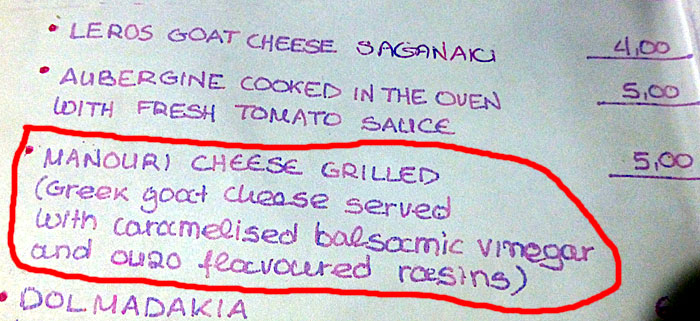 • LEROS GOAT CHEESE SAGANAKI 4,00
• AUBERGINE COOKED IN THE OVEN 5,00
WITH FRESH TOMATO SAUCE
• MANOURI CHEESE GRILLED 5,00
(Greek goat chease served
with caramelised balsamic vinegar
and ouzo flavoured raesins)
• DOLMADAKIA